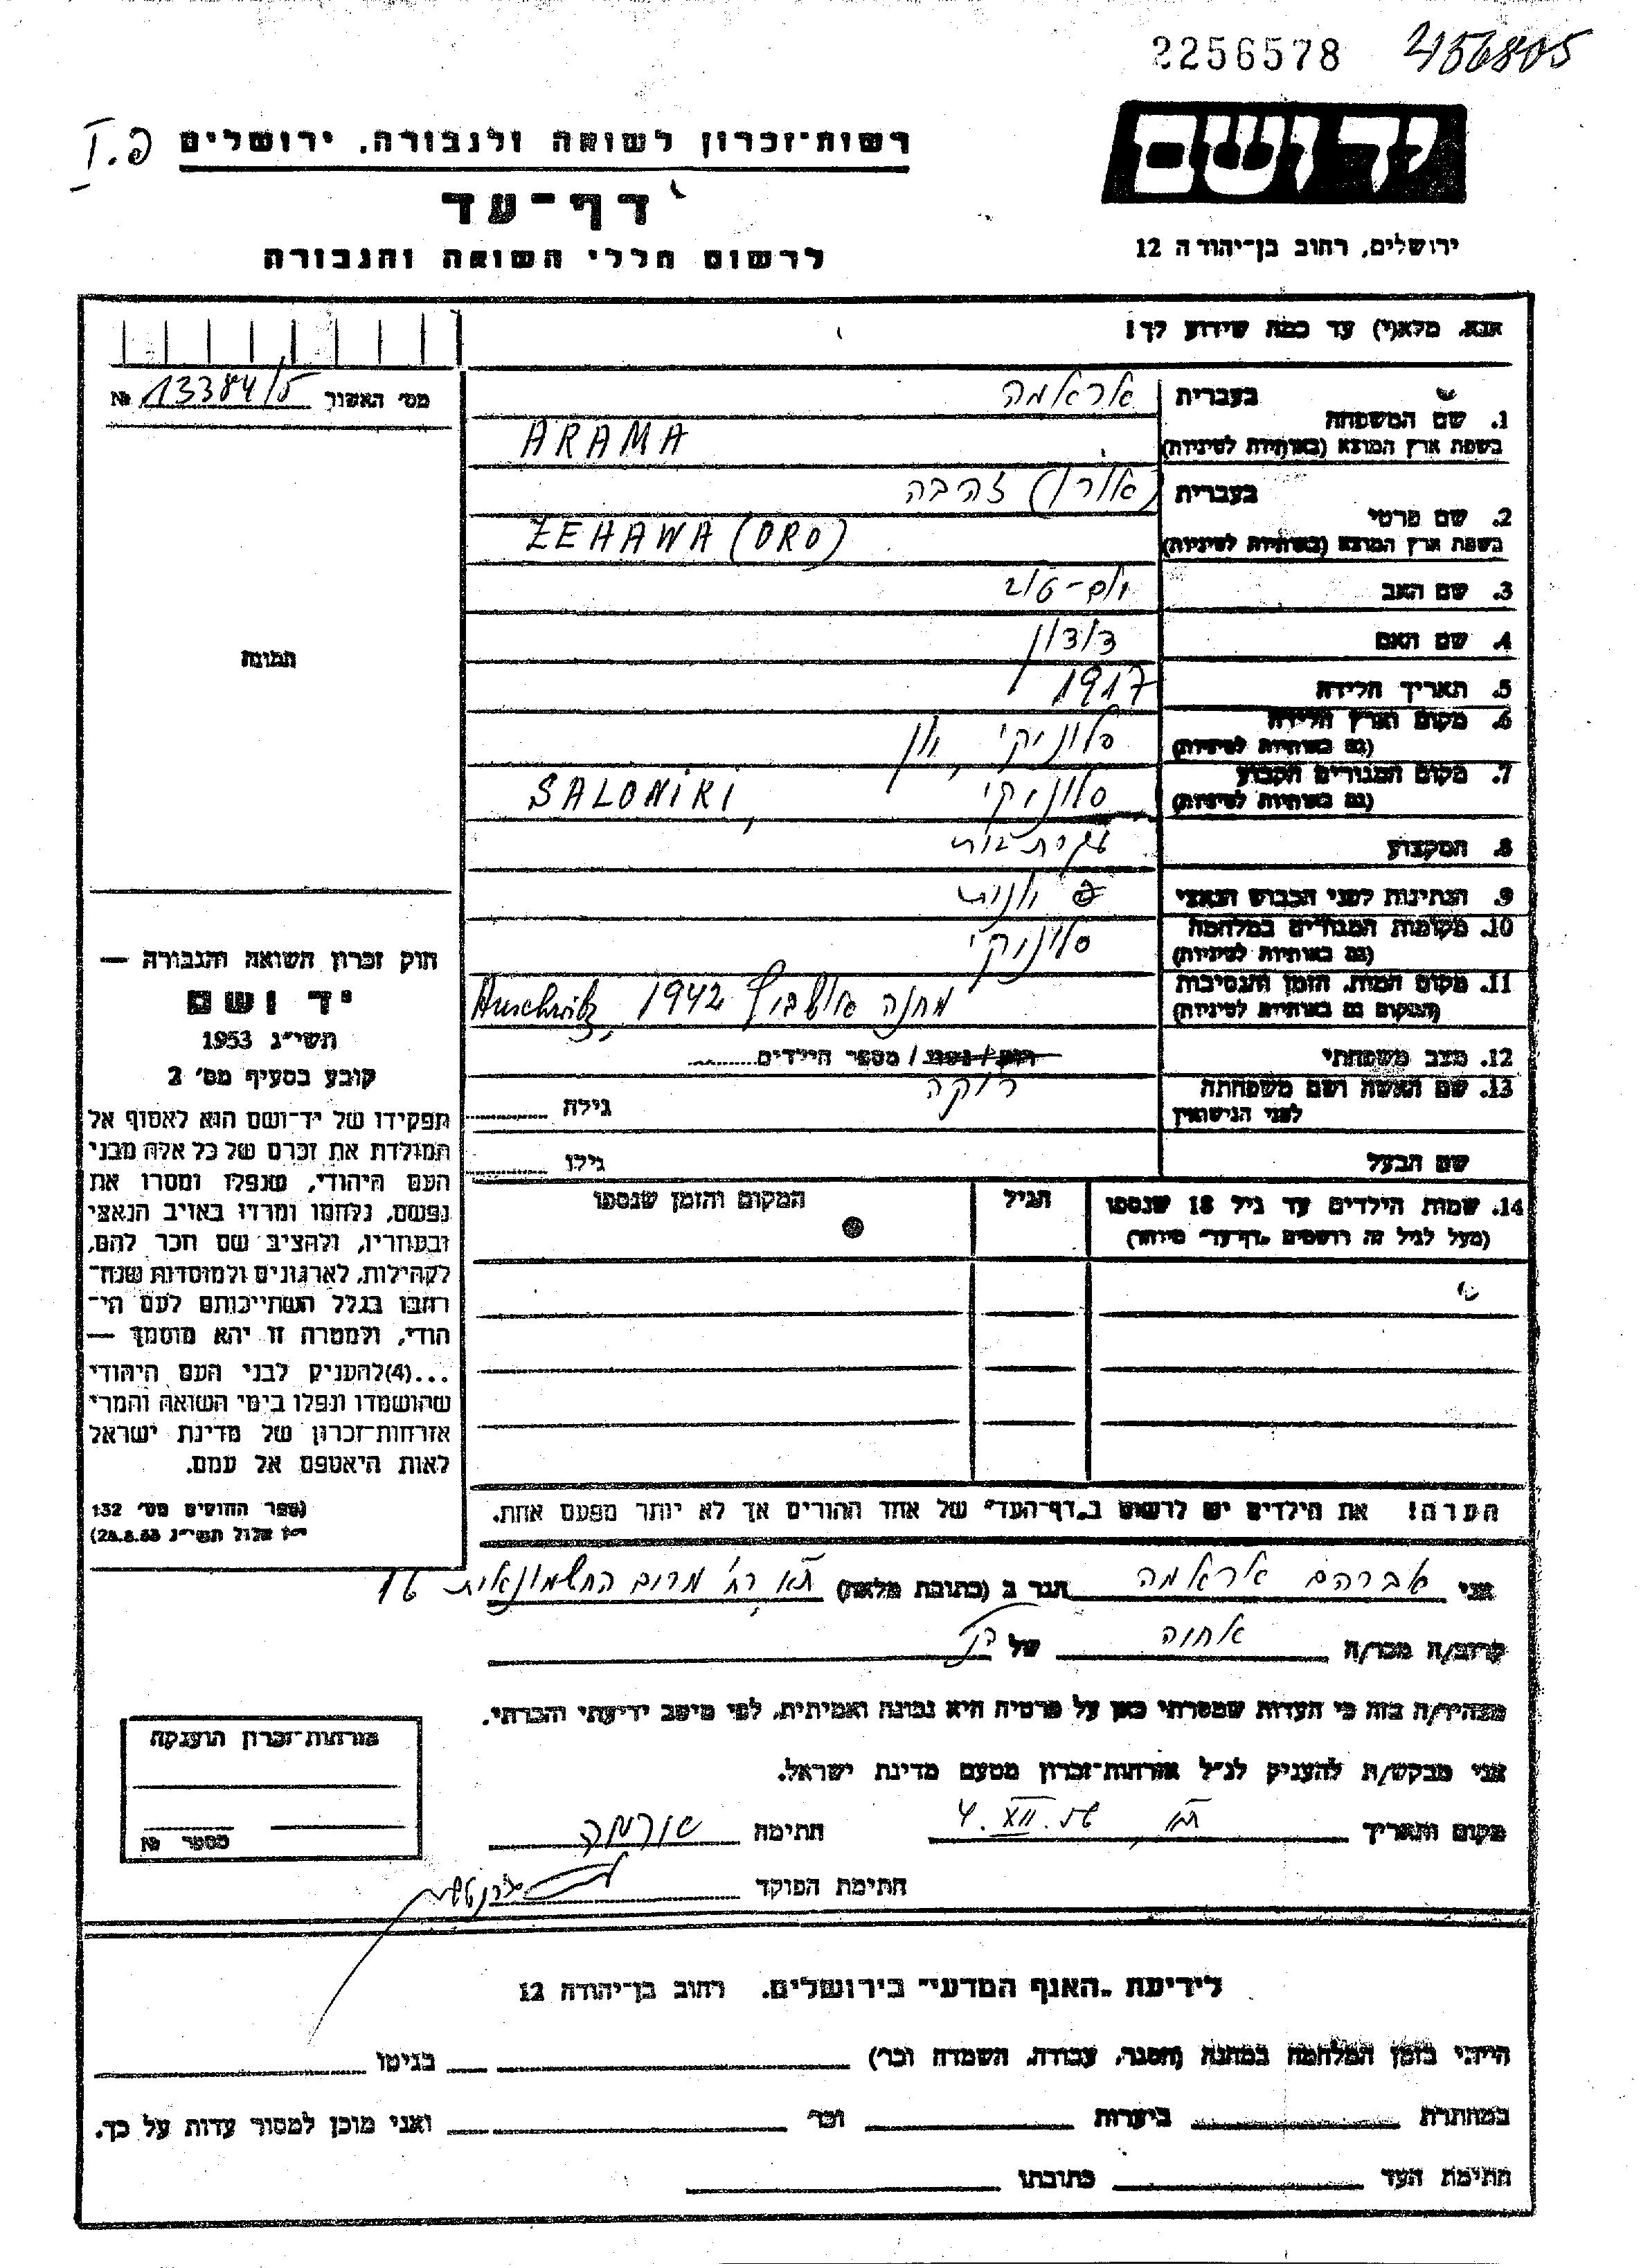 2256578 456805
יד ושם
רשות־זכרון לשואה ולגבורה. ירושלים פ. I
דף־עד
לרשום חללי השואה והגבורה
ירושלים, רחוב בן־יהודה 12
אנא, מלא(י) עד כמה שידוע לך!
מס׳ האשור 13384/5 №
1. שם המשפחה בעברית אראמה
בשפת ארץ המוצא (באותיות לטיניות) ARAMA
2. שם פרטי בעברית (אורו) זהבה
בשפת ארץ המוצא (באותיות לטיניות) ZEHAWA (ORO)
3. שם האב יום-טוב
4. שם האם
5. תאריך הלידה 1917
6. מקום וארץ הלידה סלוניקי, יון
(גם באותיות לטיניות)
7. מקום המגורים הקבוע סלוניקי SALONIKI,
(גם באותיות לטיניות)
8. המקצוע עקרת בית
9. הנתינות לפני הכבוש הנאצי יונית
10. מקומות המגורים במלחמה סלוניקי
(גם באותיות לטיניות)
11. מקום המות, הזמן והנסיבות מחנה אושביץ 1942 Auschwitz,
(המקום גם באותיות לטיניות)
12. מצב משפחתי רוק / נשוי / מספר הילדים
רוקה
13. שם האשה ושם משפחתה גילה
לפני הנישואין
שם הבעל גילו
14. שמות הילדים עד גיל 18 שנספו הגיל המקום והזמן שנספו
(מעל לגיל זה רושמים „דף־עד״ מיוחד)
תמונה
חוק זכרון השואה והגבורה —
יד ושם
תשי״ג 1953
קובע בסעיף מס׳ 2
תפקידו של יד־ושם הוא לאסוף אל
המולדת את זכרם של כל אלה מבני
העם היהודי, שנפלו ומסרו את
נפשם, נלחמו ומרדו באויב הנאצי
ובעוזריו, ולהציב שם וזכר להם,
לקהילות, לארגונים ולמוסדות שנח־
רבו בגלל השתייכותם לעם הי־
הודי, ולמטרה זו יהא מוסמך —
...(4) להעניק לבני העם היהודי
שהושמדו ונפלו בימי השואה והמרי
אזרחות־זכרון של מדינת ישראל
לאות היאספם אל עמם.
(ספר החוקים מס׳ 132
י״ז אלול תשי״ג 28.8.53)
הערה! את הילדים יש לרשום ב„דף־העד״ של אחד ההורים אך לא יותר מפעם אחת.
אני אברהם אראמה הגר ב (כתובת מלאה) ת״א רח׳ החשמונאית 16
קרוב/ה מכר/ה אחיה של הנ״ל
מצהיר/ה בזה כי העדות שמסרתי כאן על פרטיה היא נכונה ואמיתית, לפי מיטב ידיעתי והכרתי.
אני מבקש/ת להעניק לנ״ל אזרחות־זכרון מטעם מדינת ישראל.
מקום ותאריך ת״א, 4. XII. 56 חתימה
חתימת הפוקד
אזרחות־זכרון הוענקה
מספר №
לידיעת „האגף המדעי״ בירושלים. רחוב בן־יהודה 12
הייתי בזמן המלחמה במחנה (הסגר, עבודה, השמדה וכו׳) בגיטו
במחתרת ביערות וכו׳ ואני מוכן למסור עדות על כך.
חתימת העד כתובתו